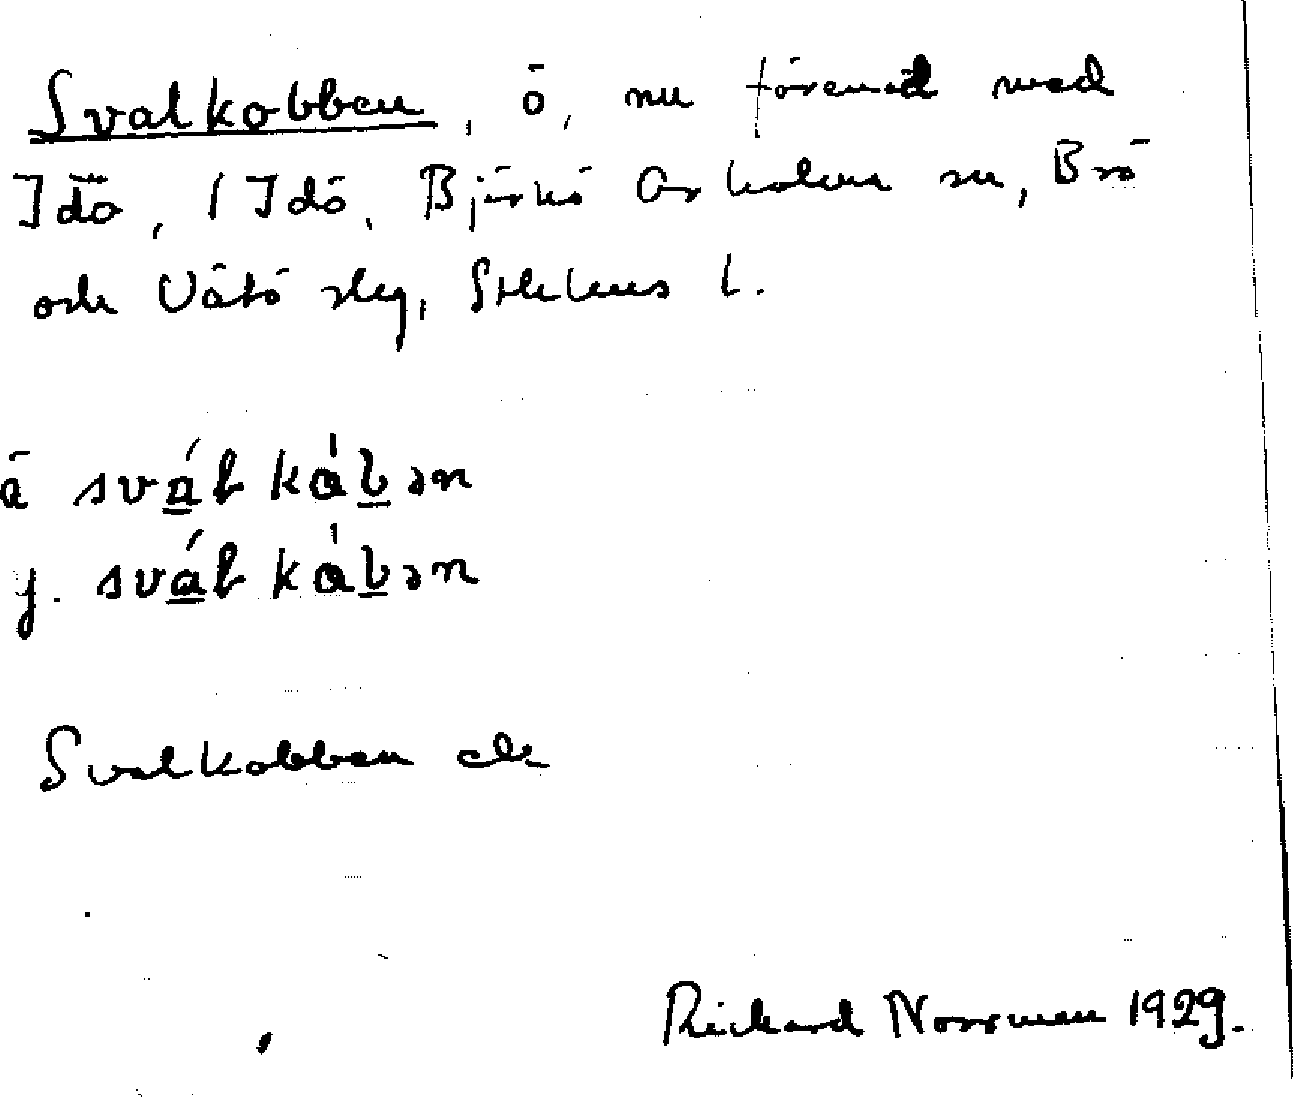 Svalkobben, ö, nu förenad med
Idö, / Idö, Björkö Arholma sn, Brö
och Vätö slg, Sthlms l.
ä svál kȧbən
y. svál kȧbən
Svalkobben ek
Rickard Norrman 1929.